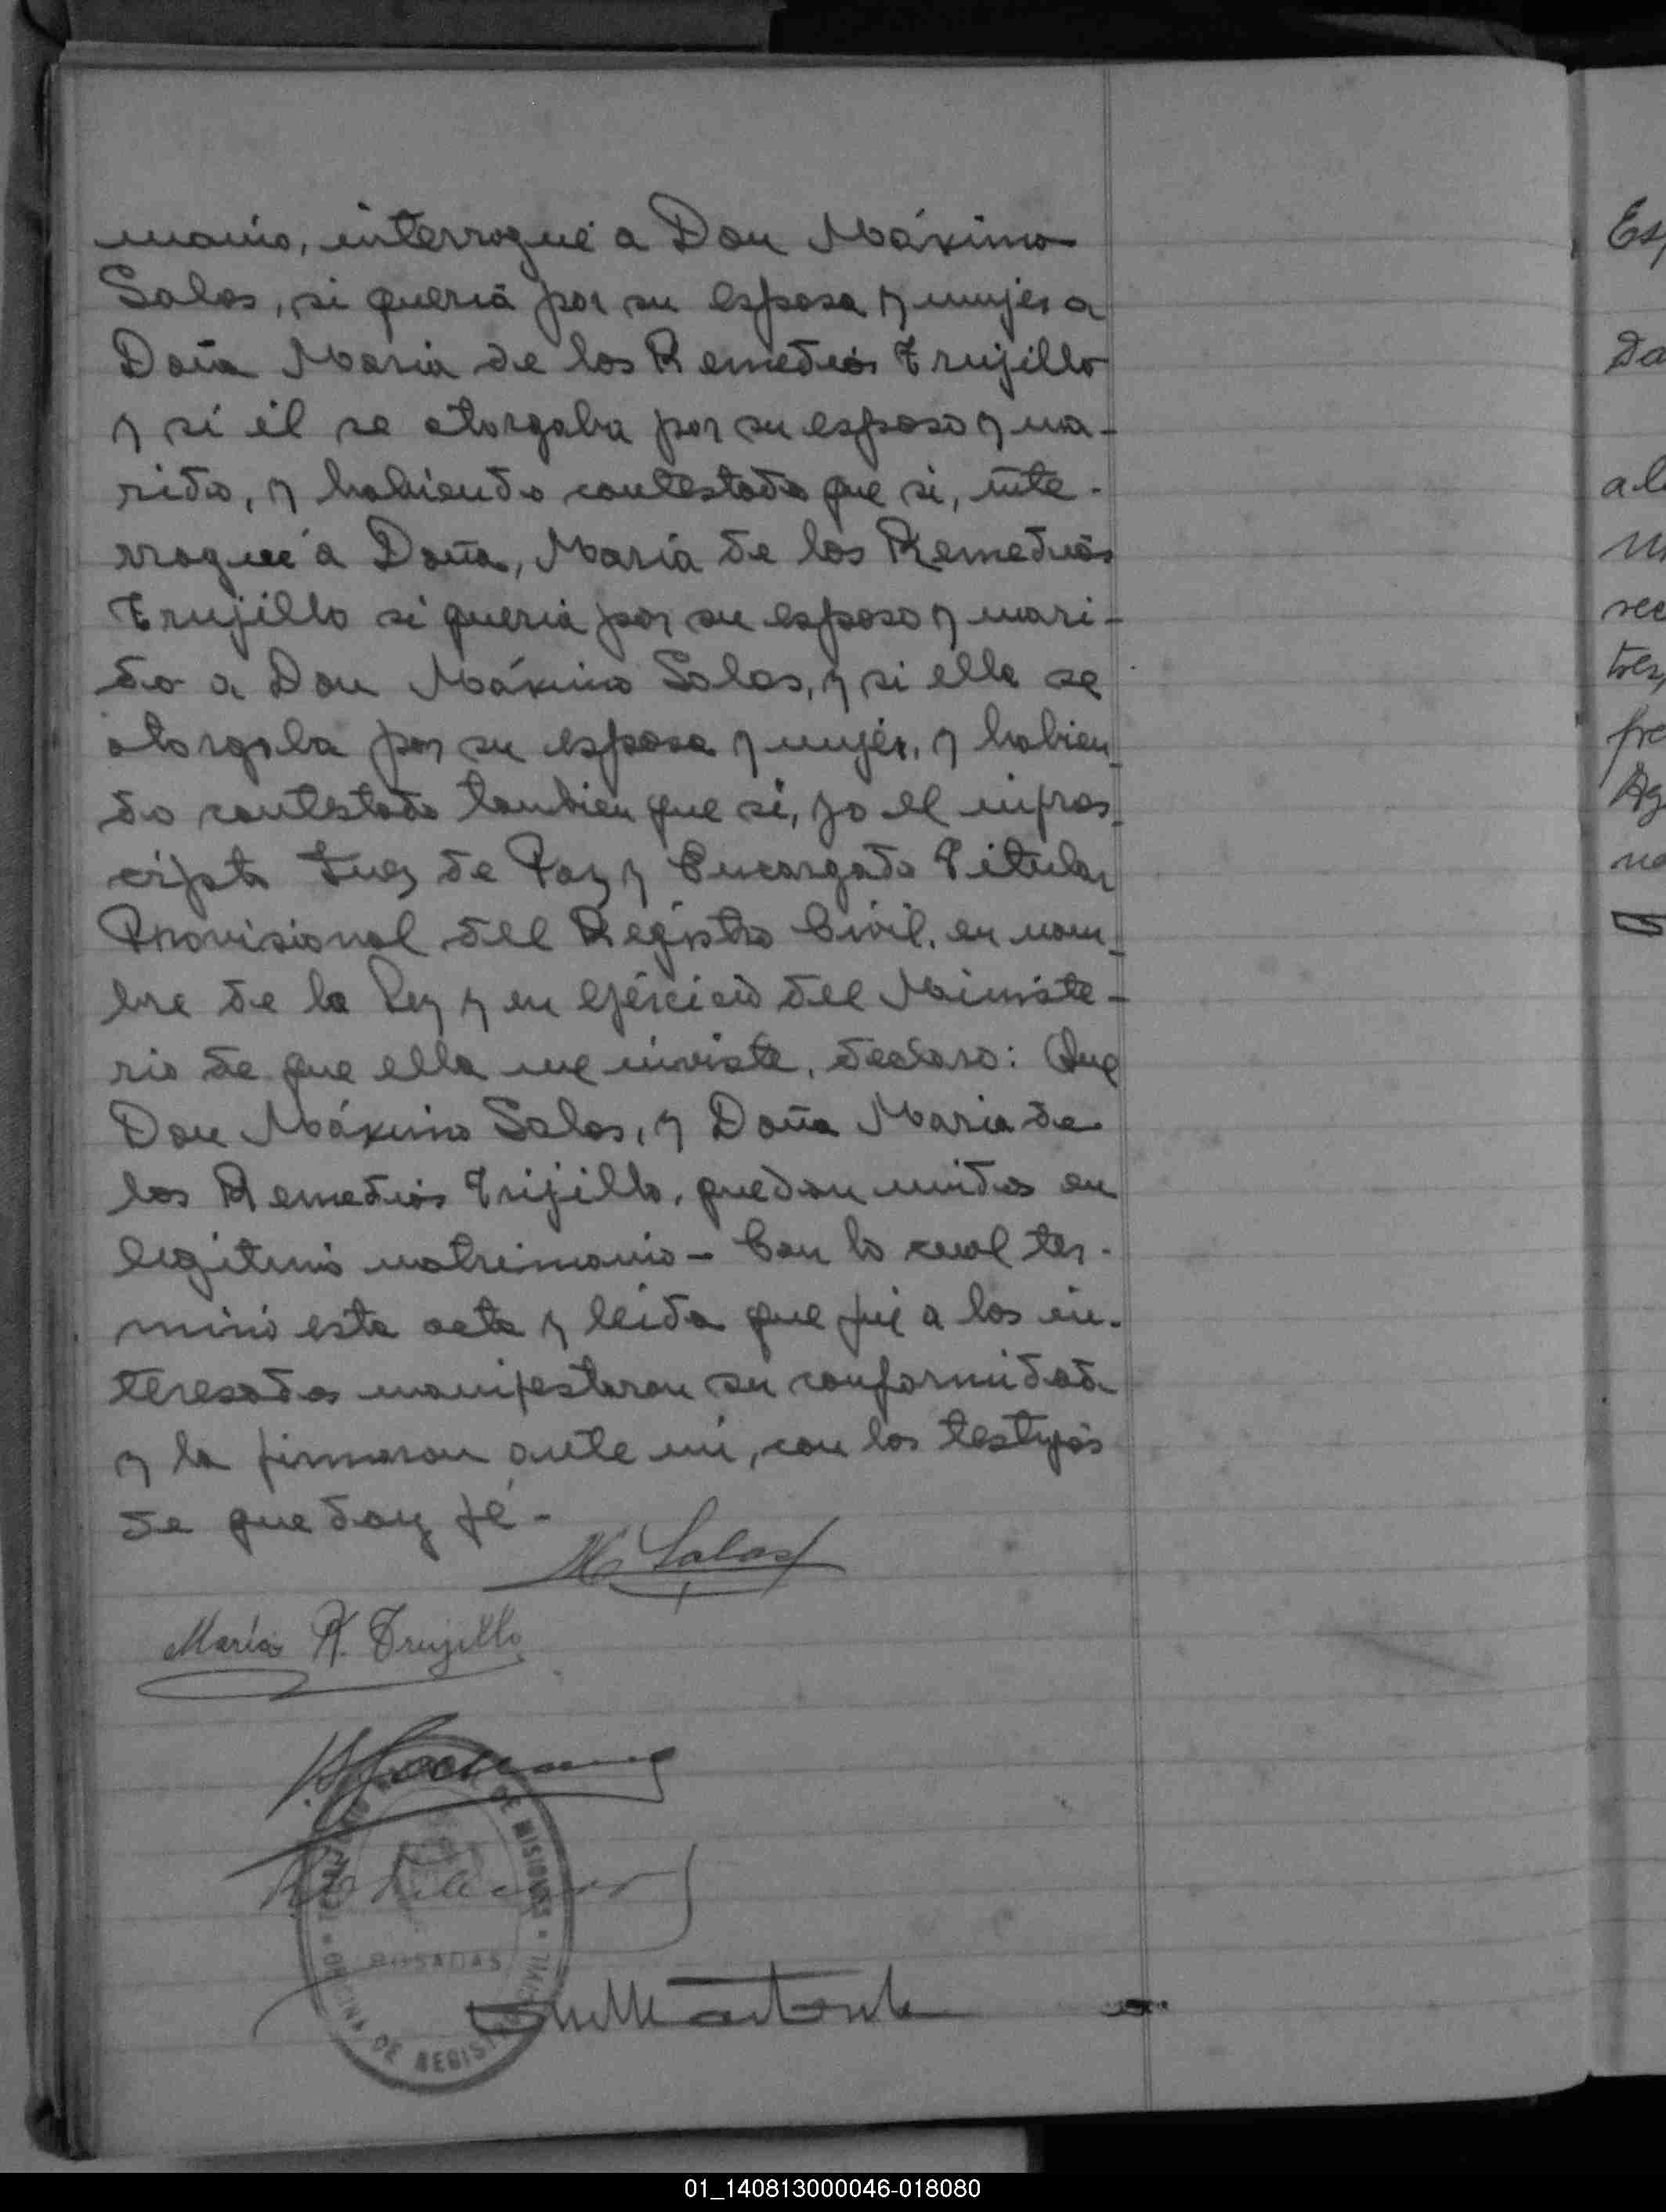 monio, interrogué a Don Máximo
Salas, si queria por su esposa y mujer a
Doña Maria de los Remedios Trujillo
y si él se otorgaba por su esposo y ma-
rido, y habiendo contestado que si, inte-
rrogué a Doña, María de los Remedios
Trujillo si queria por su esposo y mari-
do a Don Máximo Salas, y si ella se
otorgaba por su esposa y mujer, y habien-
do contestado tambien que si, yo el infras-
cripto Juez de Paz y Encargado Titular
Provisional del Registro Civil, en nom-
bre de la Ley y en ejercicio del Ministe-
rio de que ella me inviste, declaro: Que
Don Máximo Salas, y Doña Maria de
los Remedios Trijillo, quedan unidos en
legitimo matrimonio - Con lo cual ter-
minó esta acta y leida que fué a los in-
teresados manifestaron su conformidad
y la firmaron ante mi, con los testigos
de que doy fé -
M Salas
María R. Trujillo
DE MISIONES
POSADAS
OFICINA DE REGISTRO CIVIL
Es
Da
al
rec
tres,
fre
Ag
no
01_140813000046-018080